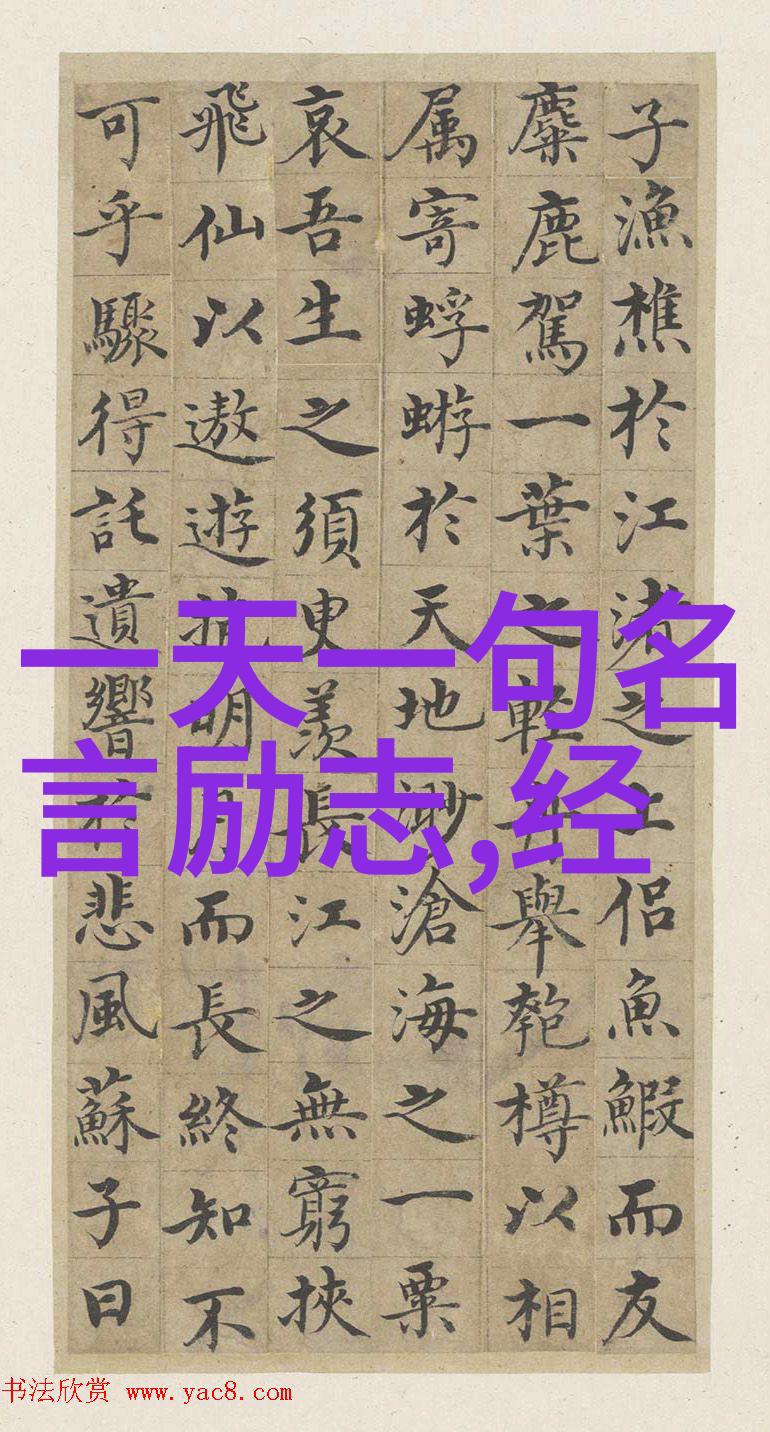 子漁樵於江渚之上侶魚鰕而友
麋鹿駕一葉之輕舟舉匏樽以相
属寄蜉蝣於天地渺滄海之一粟
哀吾生之須臾羨長江之無窮挾
飛仙以遨遊抱明月而長終知不
可乎驟得託遺響於悲風蘇子曰
一天一句名
言励志,经
书法欣赏 www.yac8.com